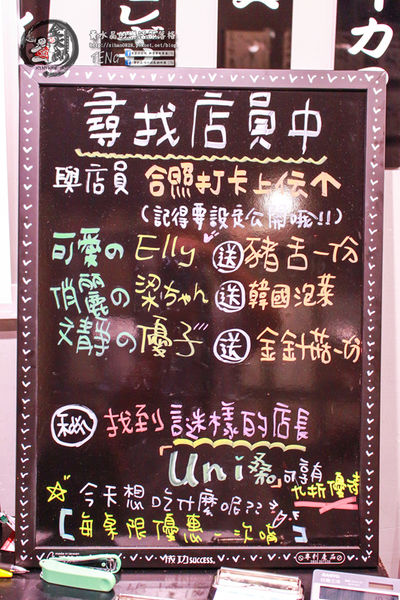 尋找店員中
與店員 合照打卡上傳个
(記得要設定公開哦!!)
可愛の Elly 送 豬舌一份
俏麗の 梁ちゃん 送 韓國泡菜
文靜の 優子 送 金針菇一份
秘 找到 謎樣的店長
Uni桑 可享有 九折優待
☆ 今天想吃什麼呢??
【每桌限優惠一次哦】
成功 SUCCESS